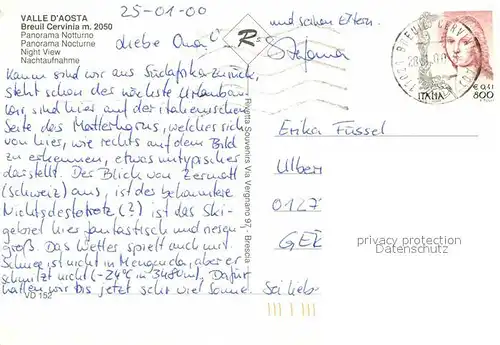 VALLE D'AOSTA
Breuil Cervinia m. 2050
Panorama Notturno
Panorama Nocturne
Night View
Nachtaufnahme
25-01-00
Liebe Oma
und seinen Eltern.
Stefania
Kaum sind wir aus Südafrika zurück,
steht schon der nächste Urlaub an.
Wir sind hier auf der italienischen
Seite des Matterhorns, welches sich
von hier, wie rechts auf dem Bild
zu erkennen, etwas untypischer
darstellt. Der Blick von Zermatt
(Schweiz) aus, ist der bekanntere
Nichtsdestotrotz (?) ist das Ski-
gebiet hier fantastisch und riesig
groß. Das Wetter spielt auch mit.
Schnee ist nicht in Mengen da, aber er
schmilzt nicht (-24°C in 3480m). Dafür
hatten wir bis jetzt sehr viel Sonne. Sei lieb
VD 152
R
Rivetta Souvenirs Via Vergnano 97 - Brescia
11021 BREUIL CERVINIA
ITALIA
€ 0,41
800
Erika Füssel
Ulber
0127
GEE
privacy protection
Datenschutz